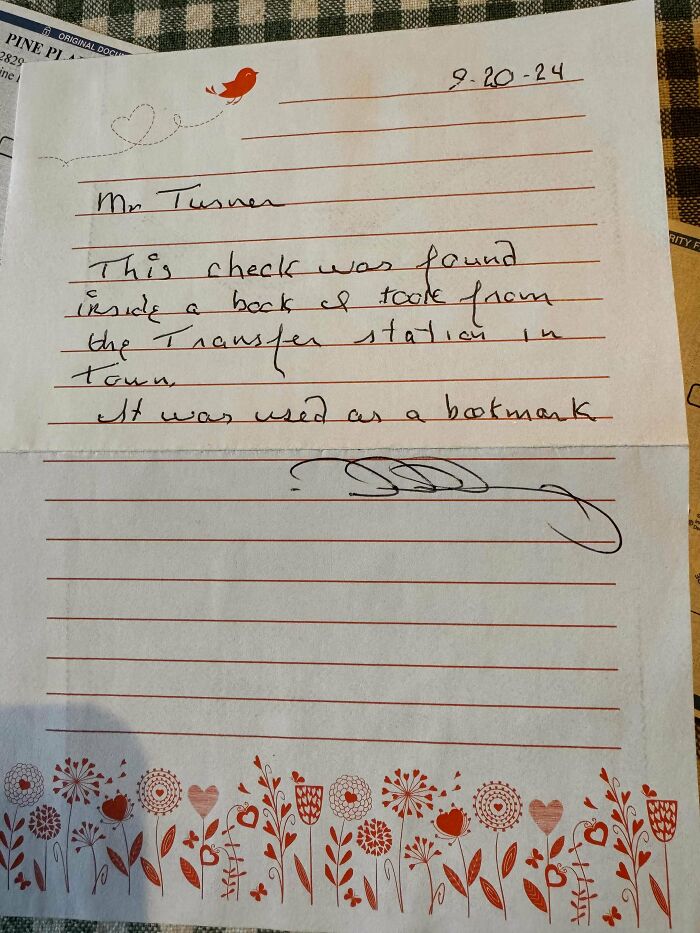 ORIGINAL DOCU
PINE PLA
2829
9-20-24
Mr Turner
This check was found
inside a book I took from
the Transfer station in
Town.
It was used as a bookmark
RITY F